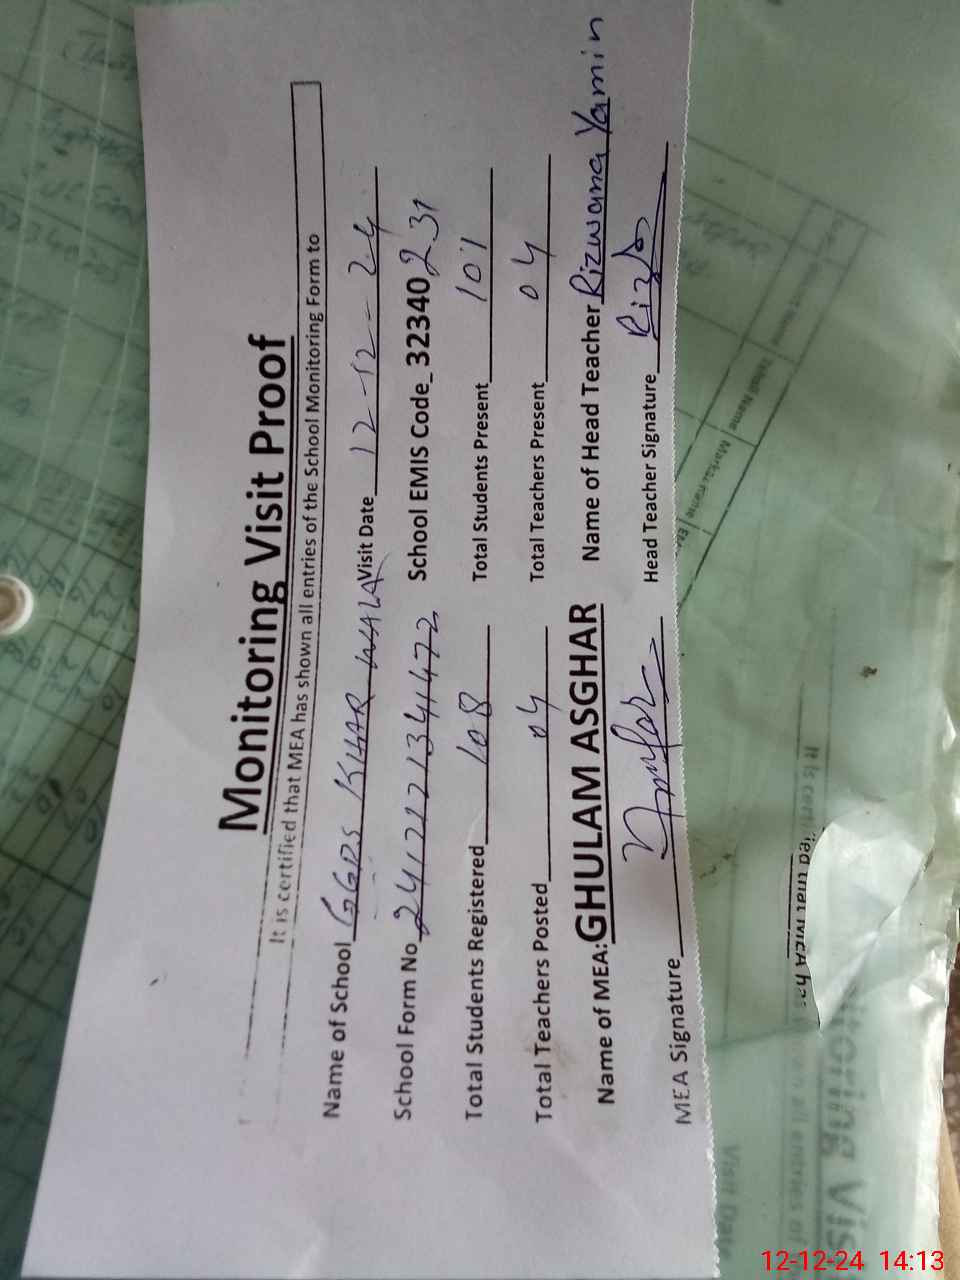 Monitoring Visit Proof
It is certified that MEA has shown all entries of the School Monitoring Form to
Name of School GGPS KHAR WALA Visit Date 12-12-24
School Form No 241212134472 School EMIS Code_ 32340231
Total Students Registered 108 Total Students Present 101
Total Teachers Posted 04 Total Teachers Present 04
Name of MEA: GHULAM ASGHAR Name of Head Teacher Rizwana Yamin
MEA Signature Head Teacher Signature
It is certified that MEA ha
all entries of
Visit Date
12-12-24 14:13